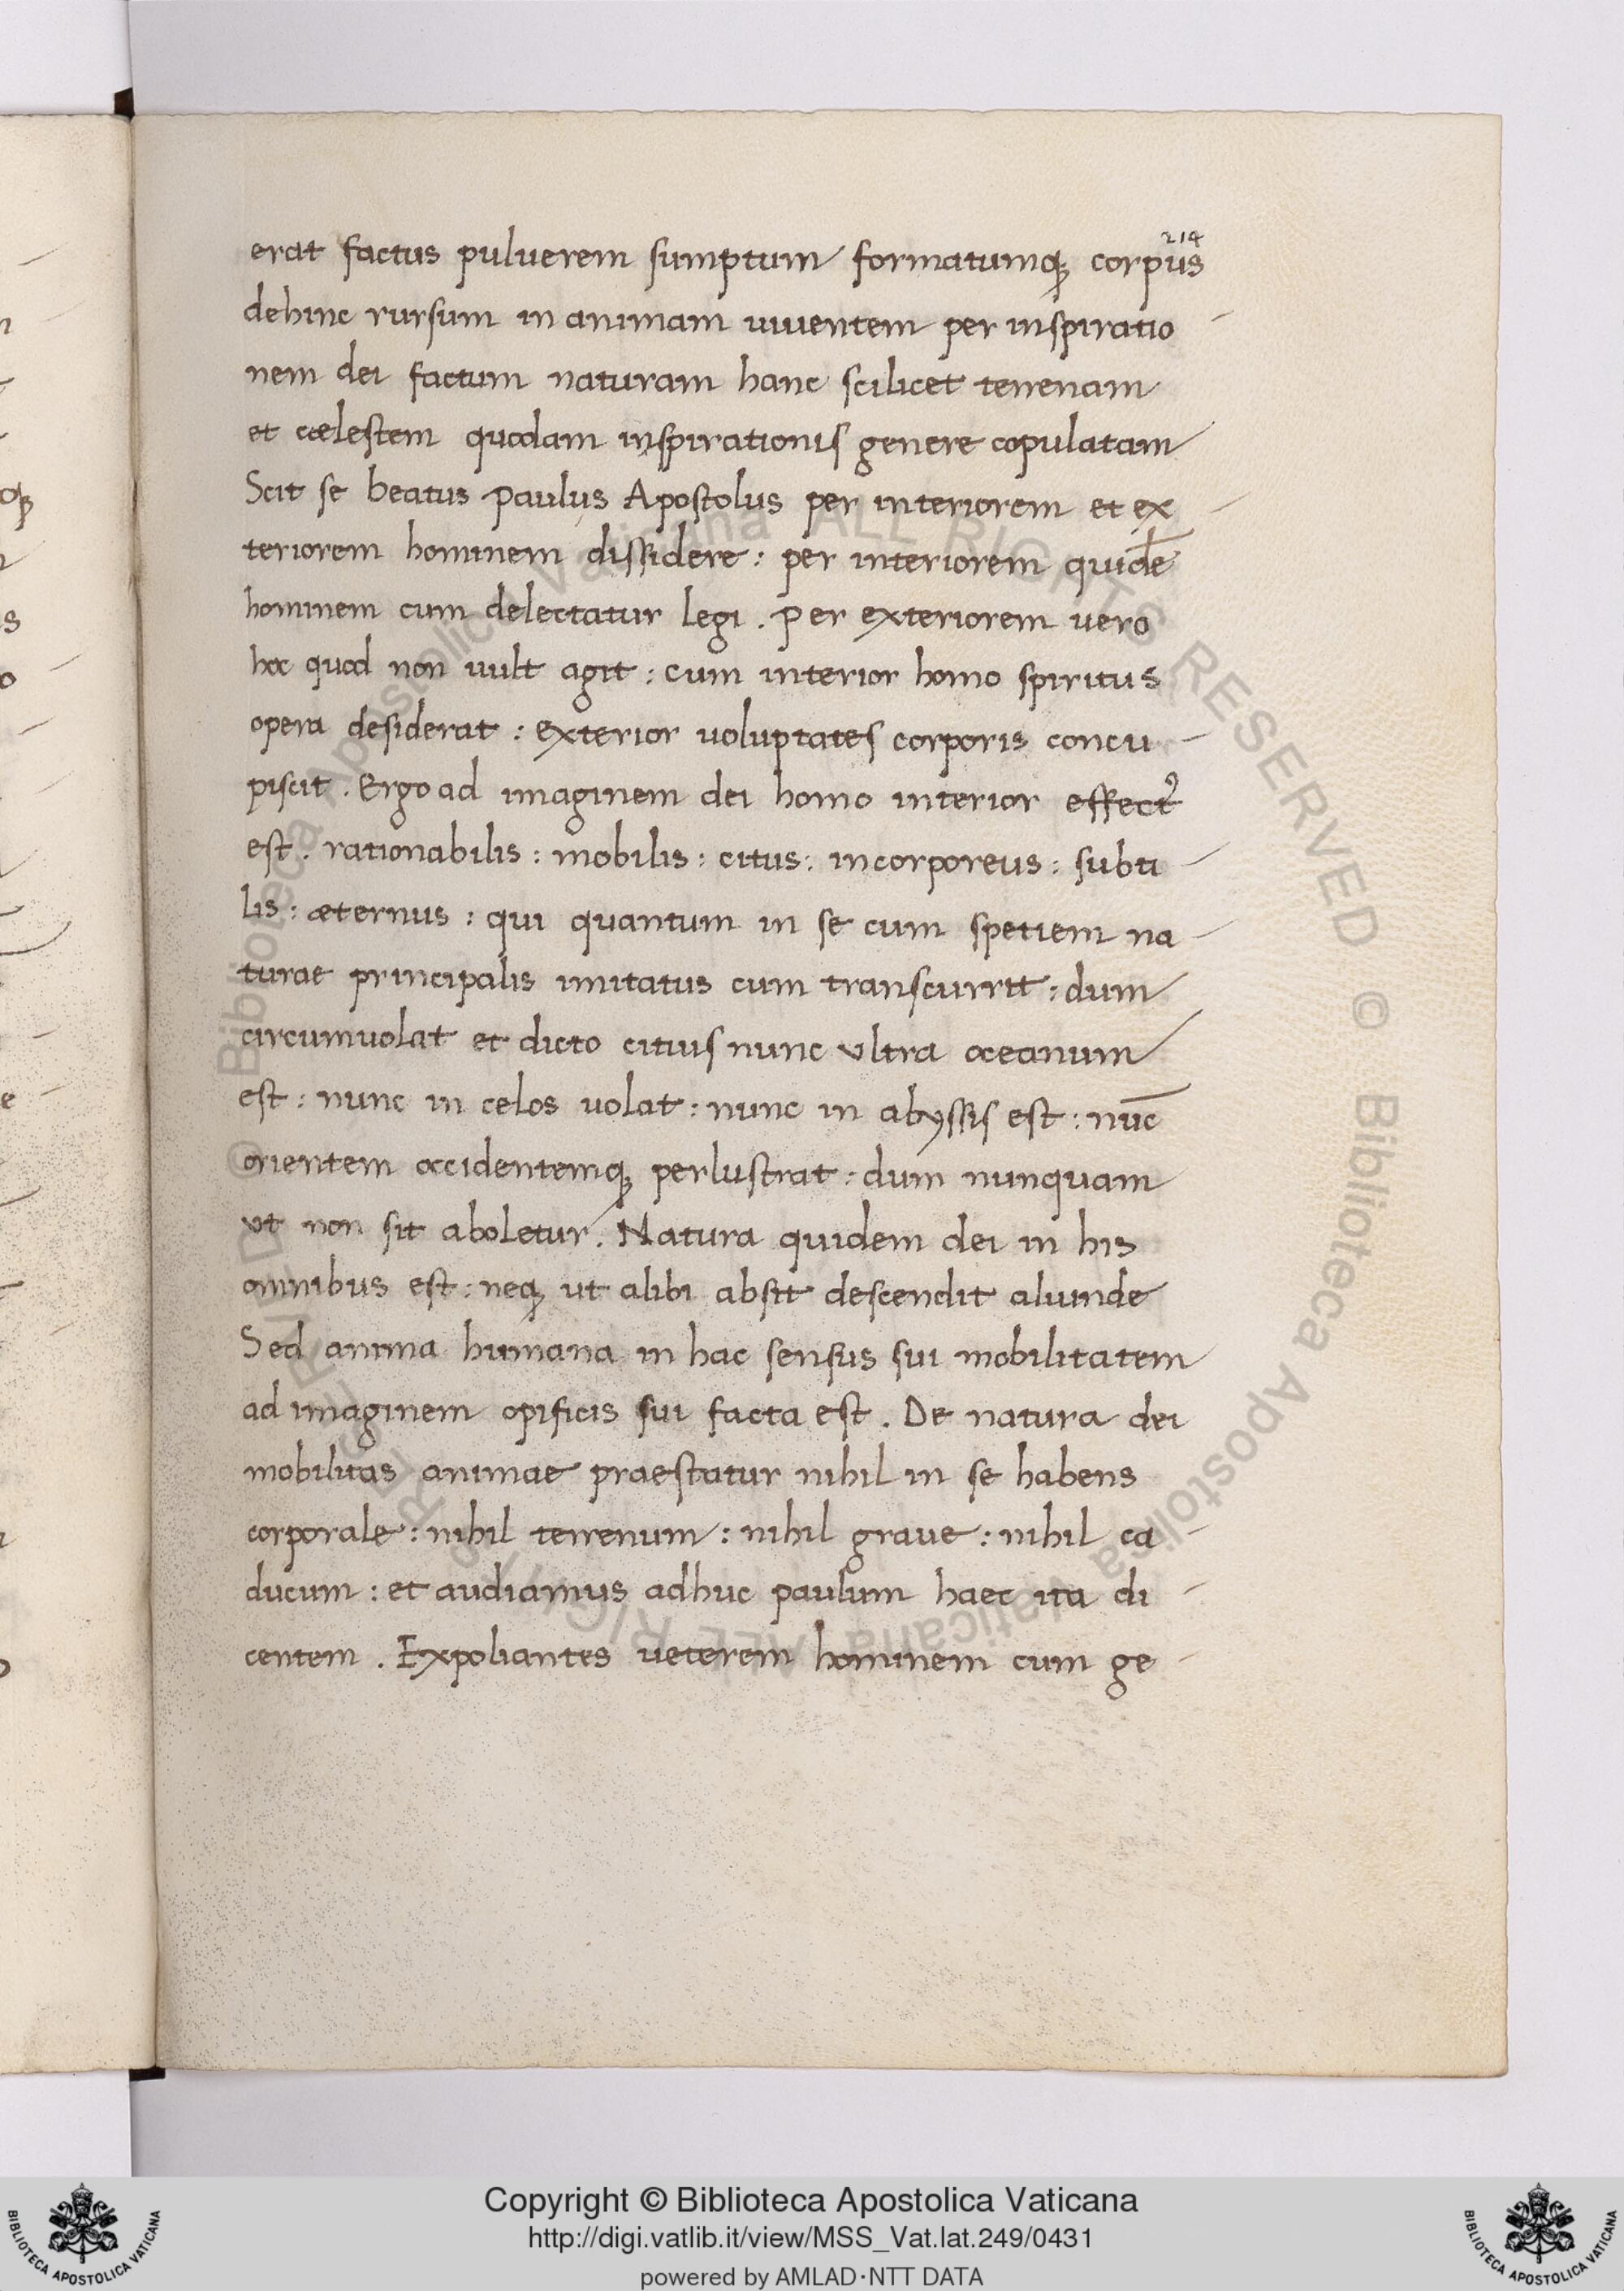 214
erat factus puluerem sumptum formatumq; corpus
dehinc rursum in animam uiuentem per inspiratio
nem dei factum naturam hanc scilicet terrenam
et cælestem quodam inspirationis genere copulatam
Scit se beatus paulus Apostolus per interiorem et ex
teriorem hominem dissidere : per interiorem quidē
hominem cum delectatur legi . per exteriorem vero
hoc quod non uult agit : cum interior homo spiritus
opera desiderat : exterior voluptates corporis concu
piscit . Ergo ad imaginem dei homo interior effectꝰ
est . rationabilis : mobilis : citus : incorporeus : subti
lis : æternus : qui quantum in se cum spetiem na
turae principalis imitatus cum transcurrit : dum
circumuolat et dicto citius nunc vltra oceanum
est : nunc in celos uolat : nunc in abyssis est : nūc
orientem occidentemq; perlustrat : dum nunquam
vt non sit aboletur . Natura quidem dei in his
omnibus est : neq; ut alibi absit descendit aliunde
Sed anima humana in hac sensus sui mobilitatem
ad imaginem opificis sui facta est . De natura dei
mobilitas animae praestatur nihil in se habens
corporale : nihil terrenum : nihil graue : nihil ca
ducum : et audiamus adhuc paulum haec ita di
centem . Expoliantes ueterem hominem cum ge
Copyright © Biblioteca Apostolica Vaticana
http://digi.vatlib.it/view/MSS_Vat.lat.249/0431
powered by AMLAD·NTT DATA
BIBLIOTECA APOSTOLICA VATICANA
BIBLIOTECA APOSTOLICA VATICANA